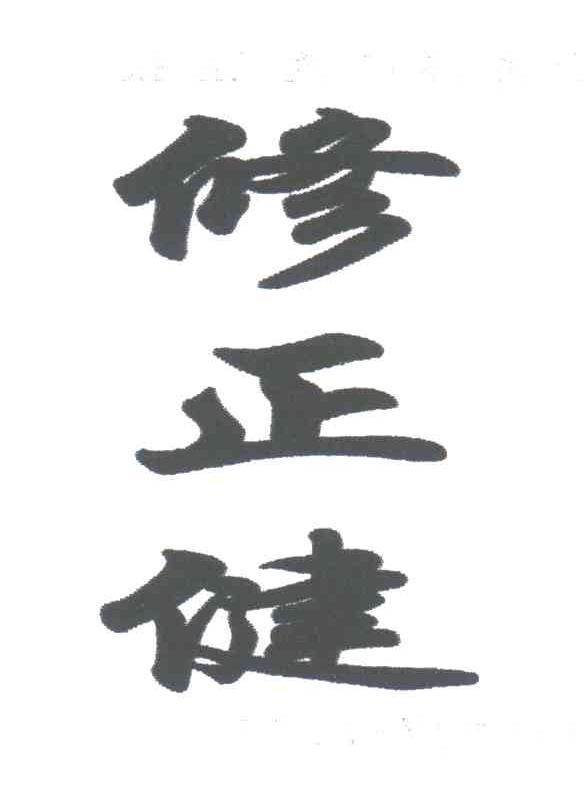 修正健